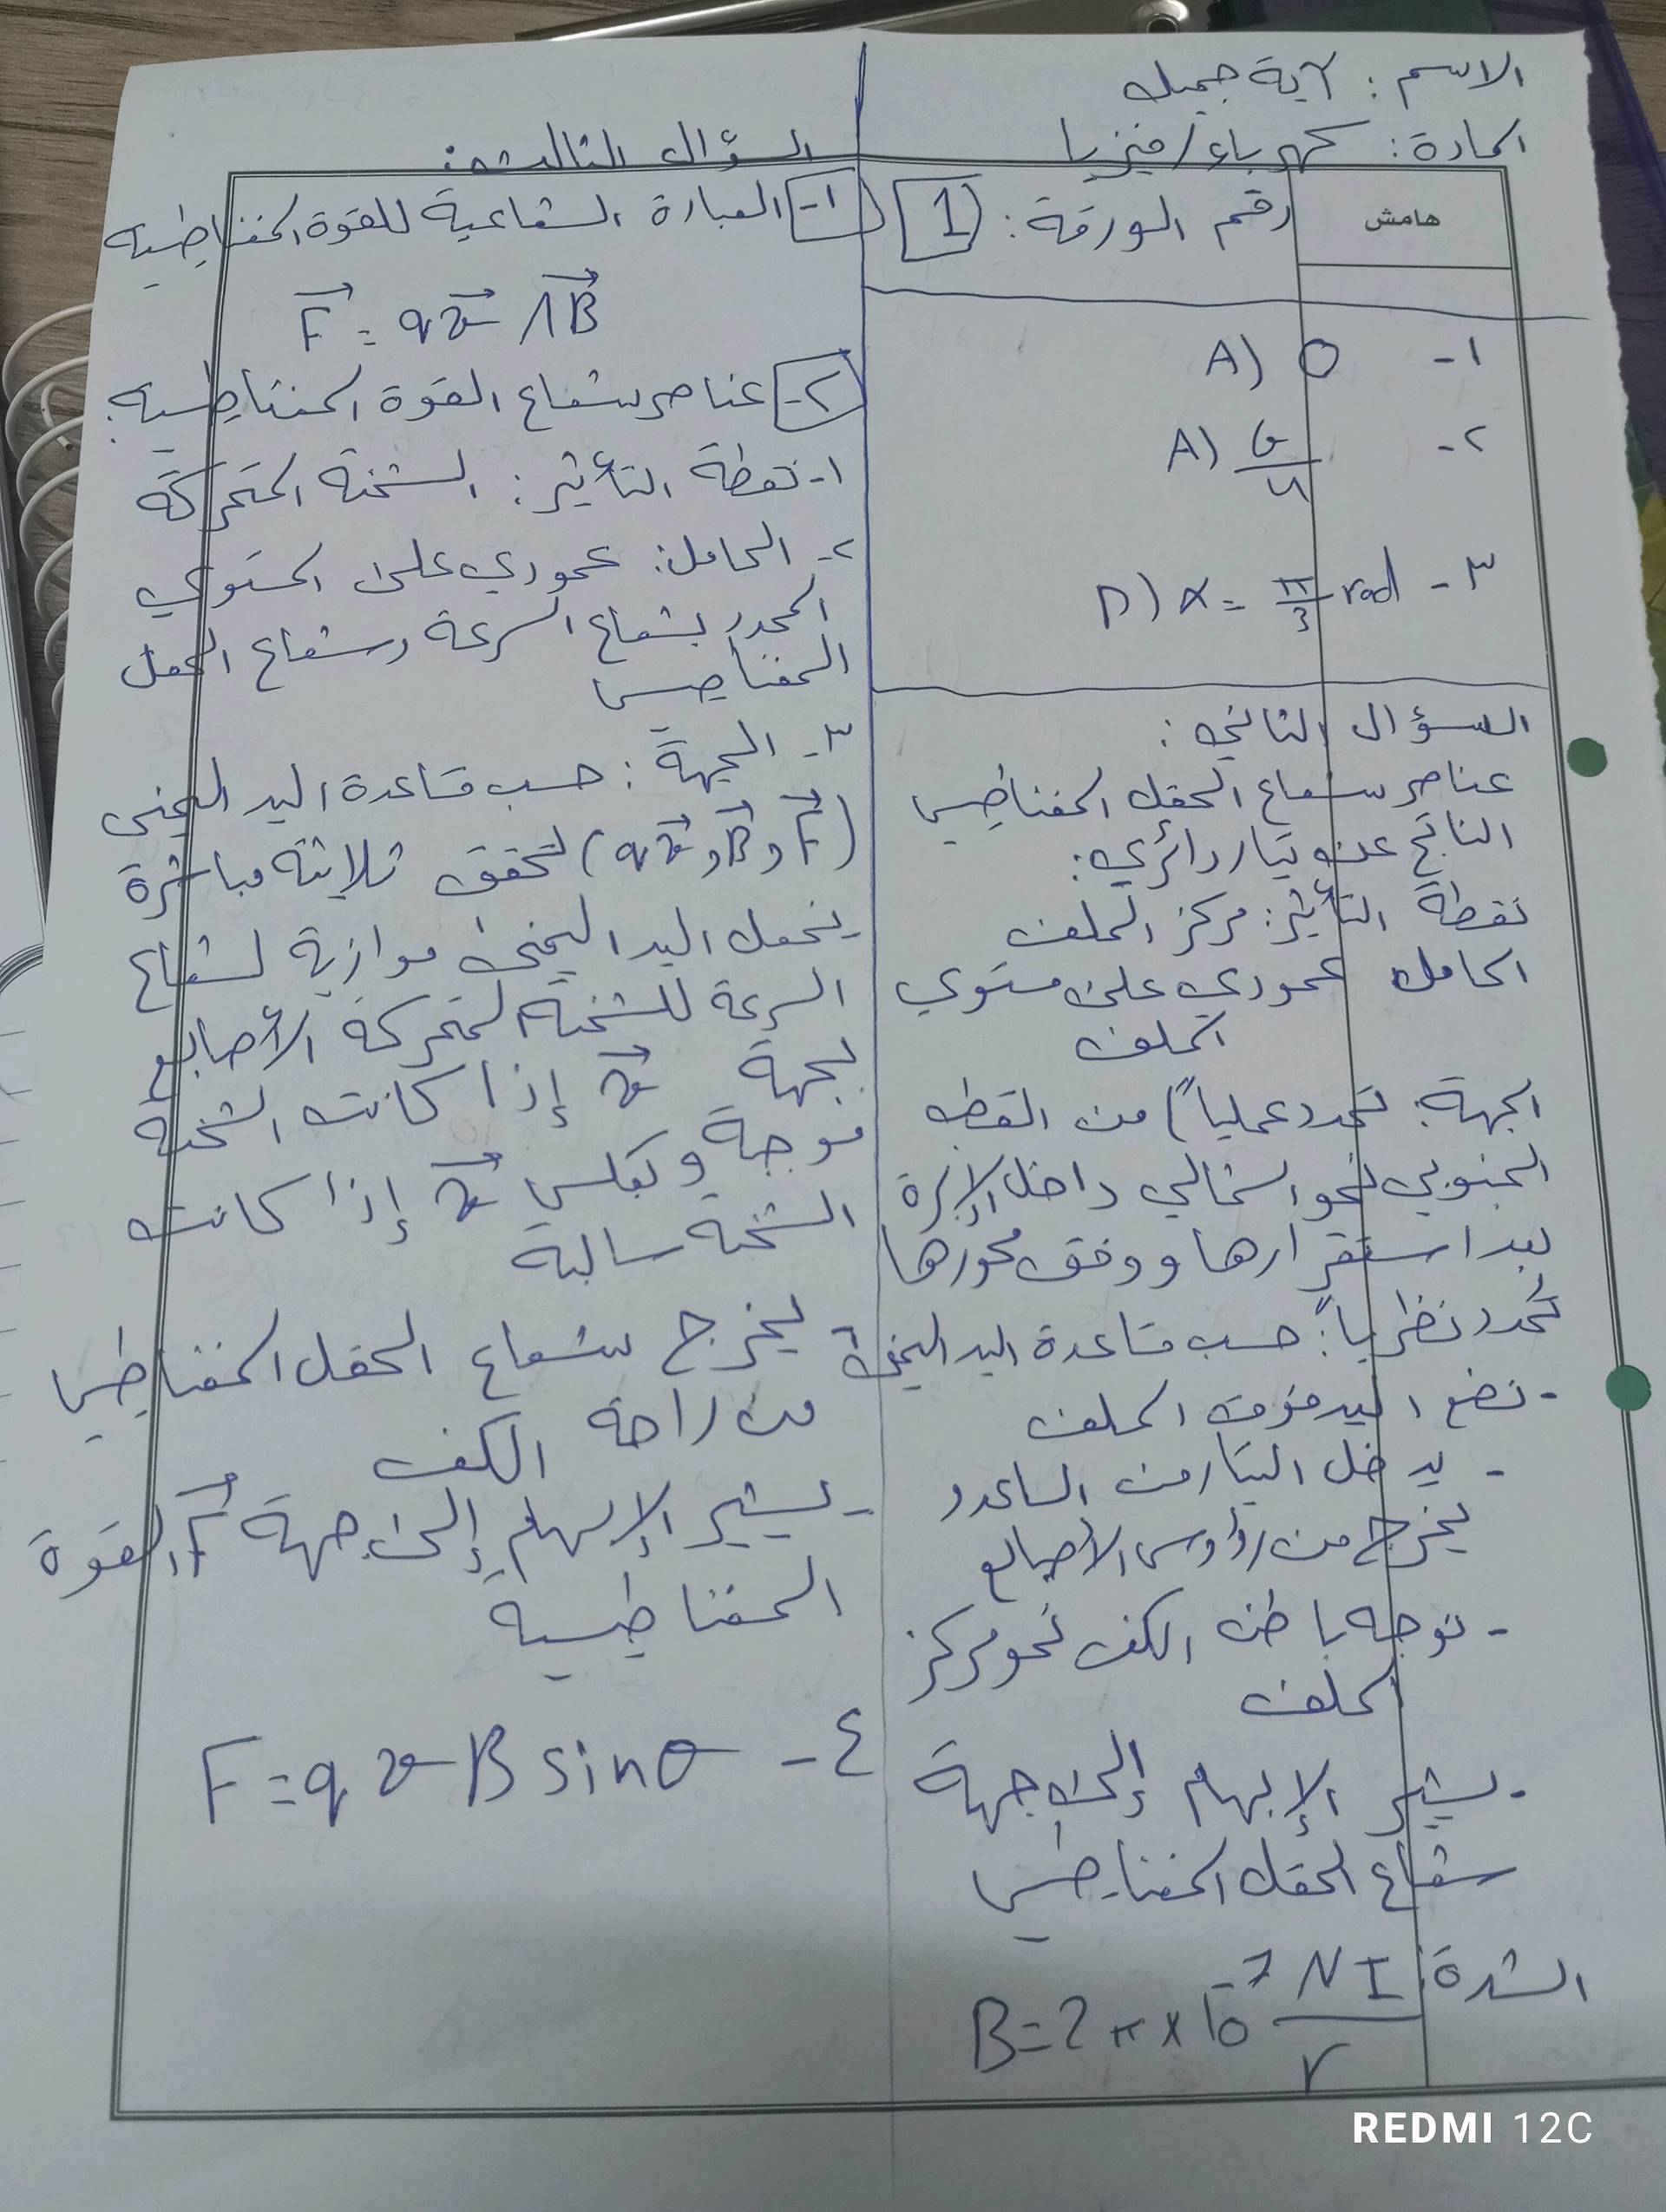 الاسم : آية جميل
المادة : كهرباء / فيزيا
هامش
رقم الورقة : 1
١- A) 0
٢- A)
٣- D) α = π/3 rad
السؤال الثاني :
عناصر شعاع الحقل المغناطيسي
الناتج عن تيار دائري :
نقطة التأثير : مركز الملف
الحامل عمودي على مستوي
الملف
الجهة : تحدد عملياً من القطب
الجنوبي نحو الشمالي داخل الإبرة
بعد استقرارها ووفق محورها
تحدد نظرياً : حسب قاعدة اليد اليمنى
- نضع اليد فوق الملف
- يدخل التيار من الساعد و
يخرج من رؤوس الأصابع
- نوجه باطن الكف نحو مركز
الملف
- يشير الإبهام إلى جهة
شعاع الحقل المغناطيسي
الشدة : B = 2π × 10⁻⁷ NI/r
السؤال الثالث :
١- العبارة الشعاعية للقوة المغناطيسية
F⃗ = q v⃗ Λ B⃗
٢- عناصر شعاع القوة المغناطيسية :
١- نقطة التأثير : الشحنة المتحركة
٢- الحامل : عمودي على المستوي
المحدد بشعاع السرعة وشعاع الحقل
المغناطيسي
٣- الجهة : حسب قاعدة اليد اليمنى
(F⃗ و B⃗ و q v⃗) تحقق ثلاثية مباشرة
- نجعل اليد اليمنى موازية لشعاع
السرعة للشحنة المتحركة الأصابع
بجهة v⃗ إذا كانت الشحنة
موجبة وبعكس v⃗ إذا كانت
الشحنة سالبة
- يخرج شعاع الحقل المغناطيسي
من راحة الكف
- يشير الإبهام إلى جهة F⃗ القوة
المغناطيسية
٤- F = q v B sin θ
REDMI 12C